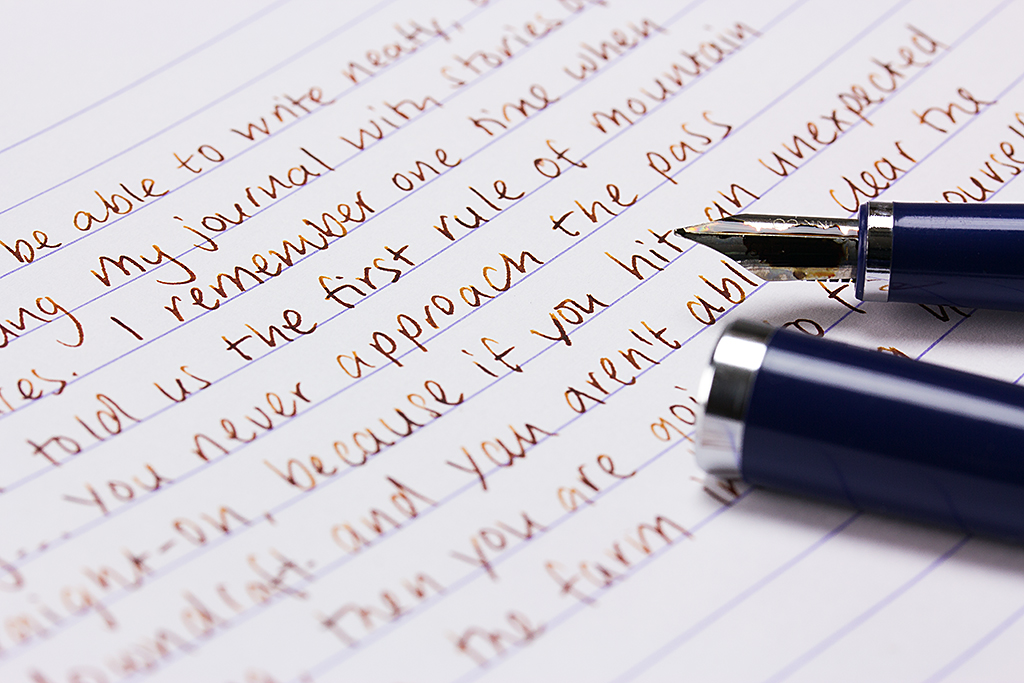 be able to write neatly,
my journal with stories
I remember one time when
told us the first rule of mountain
you never approach the pass
because if you hit an unexpected
downdraft. and you aren't abl clear the
then you are goi
the farm in